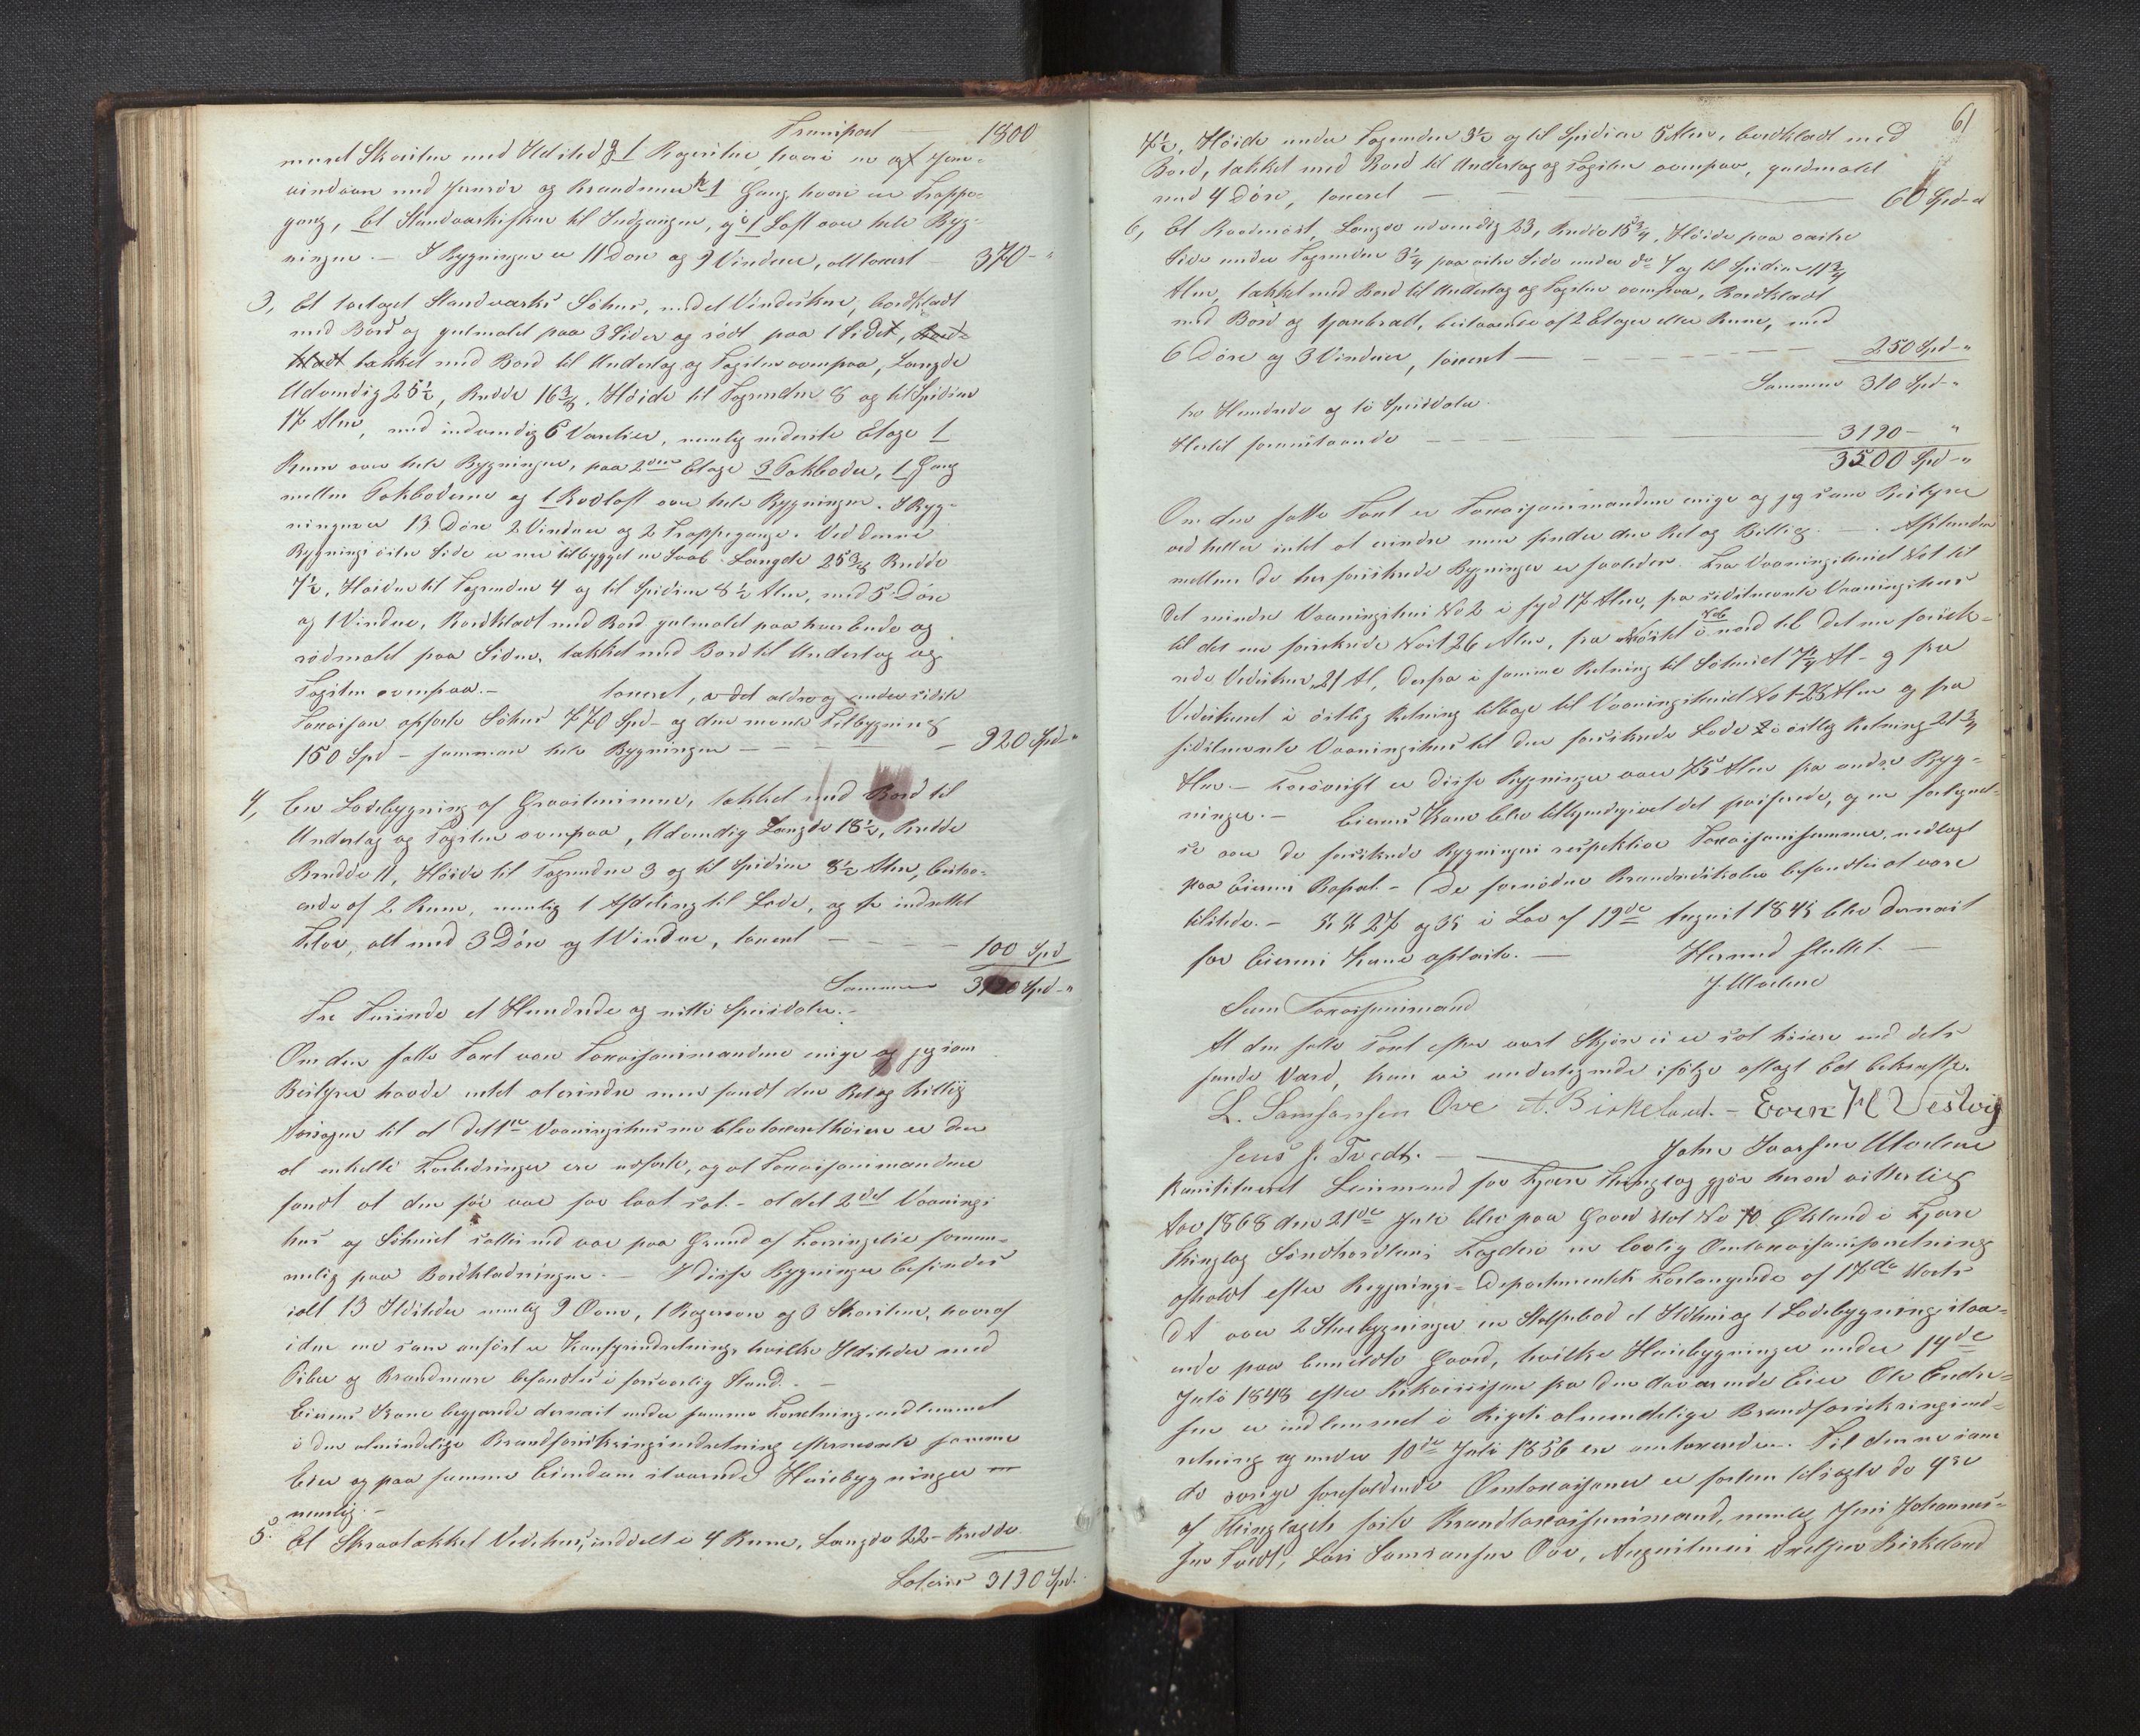 Transport — 1800
muret Skorsten med Ildsted, g 1 Kogestue hvori er og Jern-
vindovn med Jernrör og Brandmuur, h 1 Gang hvori er Trappe-
gang, Et Standværksskur til Indgangen, og i 1 Loft over hele Byg-
ningen. – I Bygningen er 11 Döre og 9 Vinduer, alt taxeret — 370 – "
3, Et toetages Standværks Söhus, med et Vindeskur, bordklædt
med Bord og gulmalet paa 3 Sider og rödt paa 1 Side,
tækket med Bord til Undertag og Tagsten ovenpaa, Længde
Udvendig 25½, Bredde 16⅜, Höide til Tagrenden 8 og til Spidsen
17 Alen, med indvendig 6 Værelser, nemlig nederste Etage 1
Rum over hele Bygningen, paa 2den Etage 3 Pakboder, 1 Gang
mellem Pakboderne og 1 Rodloft over hele Bygningen. I Byg-
ningen er 13 Döre 2 Vinduer og 2 Trappegange. Ved denne
Bygnings östre Side er nu tilbygget en Svol. Længde 25⅜ Bredde
7½, Höiden til Tagrenden 4 og til Spidsen 8½ Alen, med 5 Döre
og 1 Vindue, Bordklædt med Bord gulmalet paa hver Ende og
rödmalet paa Siden, tækket med Bord til Undertag og
Tagsten ovenpaa. – taxeret, det ældre og under sidste
Taxation opförte Söhus 770 Spd – og den nævnte Tilbygning
150 Spd – sammen hele Bygningen — 920 Spd – "
4, En Ladebygning af Graasteensmuur, tækket med Bord til
Undertag og Tagsten ovenpaa, Udvendig Længde 18½, Bredde
Bredde 11, Höide til Tagrenden 3 og til Spidsen 8½ Alen, bestaa-
ende af 2 Rum, nemlig 1 Afdeling til Lade, og 1 indrettet
Flor, alt med 3 Döre og 1 Vindue, taxeret — 100 Spd
Summen 3190 Spd – "
Tre Tusinde et Hundrede og nitti Speciedaler. –
Om den satte Taxt vare Taxationsmændene enige og jeg som
Bestyrer havde intet at erindre men fandt den Ret og billig
Aarsagen til at det 1ste Vaaningshus nu blev taxeret höiere er den
at enkelte Forbedringer ere udförte, og at Taxationsmændene
fandt at den för var for lavt sat. – at det 2det Vaanings
hus og Söhuset sattes ned var paa Grund af Forringelse fornem-
melig paa Bordklædningen. – I disse Bygninger befindes
ialt 13 Ildsteder nemlig 9 Ovne, 1 Kogeovn og 3 Skorstene, hvoraf
i den ene som anfört er Komfyrindretning, hvilke Ildsteder med
Piber og Brandmure befandtes i forsvarlig Stand. –
Eierens Kone begjærede dernæst under samme Forretning indlemmet
i den almindelige Brandforsikringsindretning efternævnte samme
Eier og paa samme Eiendom staaende Huusbygninger
nemlig. –
5. Et Skraatækket Vedehus, inddelt i 4 Rum, Længde 22 – Bredde
Lateris 3190 Spd.
61
7½, Höide under Tagrenden 3½ og til Spidsen 5 Alen, bordklædt med
Bord, tækket med Bord til Undertag og Tagsten ovenpaa, gulmalet
med 4 Döre, taxeret — 60 Spd – "
6, Et Baadnöst, Længde udvendig 23, Bredde 15¾, Höide paa vestre
Side under Tagrenden 3¼ paa östre Side under do 7 og til Spidsen 11¾
Alen, tækket med Bord til Undertag og Tagsten ovenpaa, Bordklædt
med Bord og tjærebræt, bestaaende af 2 Etager eller Rum, med
6 Döre og 3 Vinduer, taxeret — 250 Spd – "
Summen 310 Spd – "
tre Hundrede og ti Speciedaler.
Hertil foranstaaende — 3190 – "
3500 Spd – "
Om den satte Taxt er Taxationsmændene enige og jeg som Bestyrer
ved heller intet at erindre men finder den Ret og Billig. — Afstanden
mellem de her forsikrede Bygninger er saaledes. Fra Vaaningshuset No 1 til
det mindre Vaaningshus No 2 i syd 17 Alen, fra sidstnævnte Vaaningshus
til det nu forsikrede Nöst 26 Alen, fra Nöstet i nord til det nu forsik-
rede Vedeskuur 21 Al, derfra i samme Retning til Söhuset 7¼ Al – og fra
Vedeskuret i östlig Retning tilbage til Vaaningshuset No 1 – 23 Alen og fra
sidstnævnte Vaaningshus til den forsikrede Lade i östlig Retning 21¾
Alen. – Forövrigt er disse Bygninger over 75 Alen fra andre Byg-
ninger. – Eierens Kone blev tilkjendegivet det passerede, og en fortegnel-
se over de forsikrede Bygningers respektive Taxationssummer, nedlagt
paa Eierens Bopæl. – De fornödne Brandredskaber befandtes at være
tilstede. – §§ 27 og 35 i Lov af 19de August 1845 blev dernæst
for Eierens Kone oplæste. — Hermed sluttet. —
J. Uladene
Som Taxationsmænd
At den satte Taxt efter vort Skjön ei er sat höiere end dets
sande Værd, kan vi undertegnede ifölge aflagt Eed bekræfte.
L. Samsonsen Ove A. Birkeland. – Even H Vestvig
Jens J. Tvedt. — John Ivarsen Uladene
Konstitueret Lensmand for Fjære Thinglag gjör herved vitterligt
Aar 1868 den 21de Juli blev paa Gaard Mat No 10 Ökland i Fjære
Thinglag Söndhordlens Fogderi en lovlig Omtaxationsforretning
afholdt efter Regjerings-Departementets Forlangende af 17de Marts
d A over 2 Stuebygninger en Stolpebod et Ildhus og 1 Ladebygning staa-
ende paa bemeldte Gaard, hvilke Huusbygninger under 14de
Juli 1848 efter Rekvisition fra den daværende Eier Ole Endre-
sen er indlemmet i Rigets almindelige Brandforsikringsind-
retning og under 10de Juli 1856 ere omtaxerede. Til denne som
de övrige forefaldende Omtaxationer er forlem tilsagte de 4re
af Thinglagets faste Brandtaxationsmænd, nemlig Jens Johannes-
sen Tvedt, Lars Samsonsen Ove, Augustinus Axelsen Birkeland